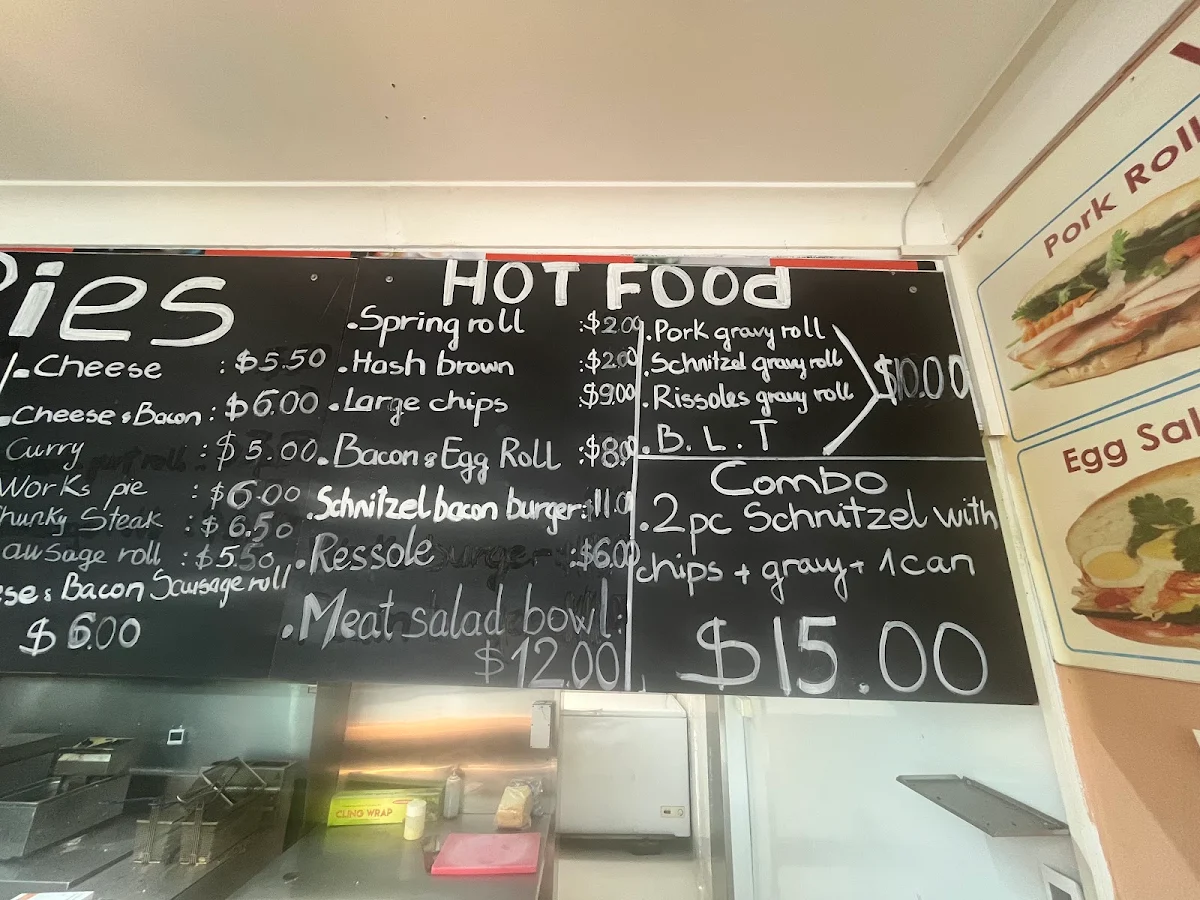 Pies
.Cheese : $5.50
.Cheese & Bacon : $6.00
Curry : $5.00
Works pie : $6.00
hunky Steak : $6.50
ausage roll : $5.50
ese & Bacon Sausage roll
$6.00
HOT FOOd
.Spring roll :$2.00
.Hash brown :$2.00
.Large chips :$9.00
.Bacon & Egg Roll :$8.00
.Schnitzel bacon burger: 11.0
.Ressole :$6.00
.Meat salad bowl:
$12.00
.Pork gravy roll
.Schnitzel gravy roll
.Rissoles gravy roll
.B.L.T
$10.00
Combo
.2pc Schnitzel with
chips + gravy + 1 can
$15.00
Pork Roll
Egg Sal
CLING WRAP